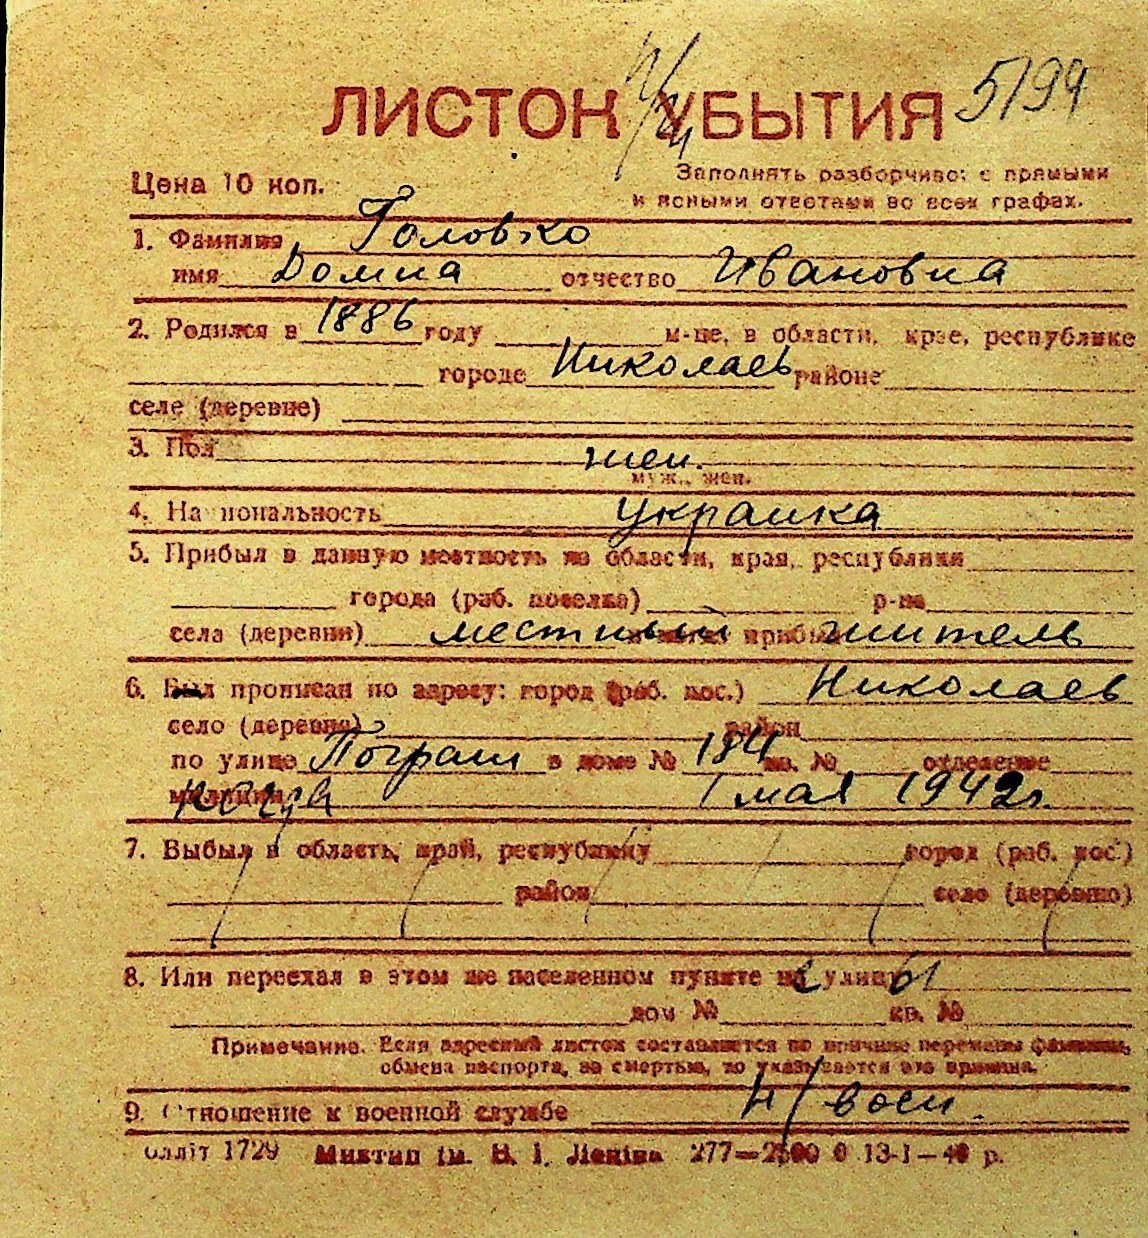 ЛИСТОК УБЫТИЯ 5194
Цена 10 коп.
Заполнять разборчиво: с прямыми
и ясными ответами во всех графах.
1. Фамилия Головко
имя Домна отчество Ивановна
2. Родился в 1886 году м-це, в области, крае, республике
городе Николаев районе
селе (деревне)
3. Пол жен.
муж., жен.
4. Национальность украинка
5. Прибыл в данную местность из области, края, республики
города (раб. поселка) р-на
села (деревни) местный житель
6. Был прописан по адресу: город (раб. пос.) Николаев
село (деревня) район
по улице Погран в доме № 184 кв. № отделение
милиции когда 1 мая 1942г.
7. Выбыл в область, край, республику город (раб. пос.)
район село (деревню)
8. Или переехал в этом же населенном пункте с улицы
дом № кв. №
Примечание. Если адресный листок составляется по причине перемены фамилии,
обмена паспорта, за смертью, то указывается эта причина.
9. Отношение к военной службе н/воен.
олліт 1729 Миктип ім. В. І. Леніна 277—2500 0 13-I—40 р.